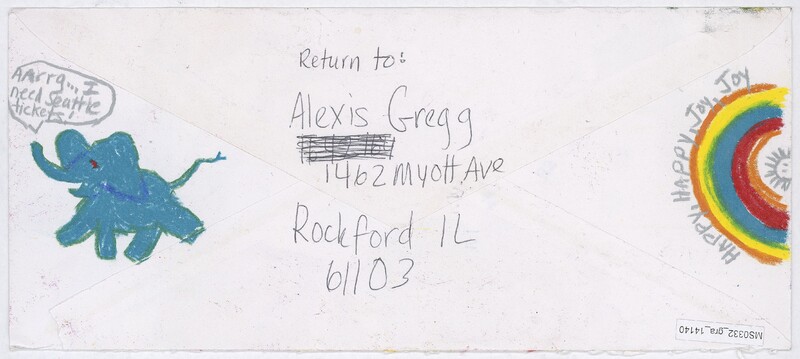 Arrrg... I
need Seattle
tickets!
Return to:
Alexis Gregg
1462 Myott Ave
Rockford IL
61103
HAPPY, HAPPY, Joy, Joy
MS0332_gra_14140